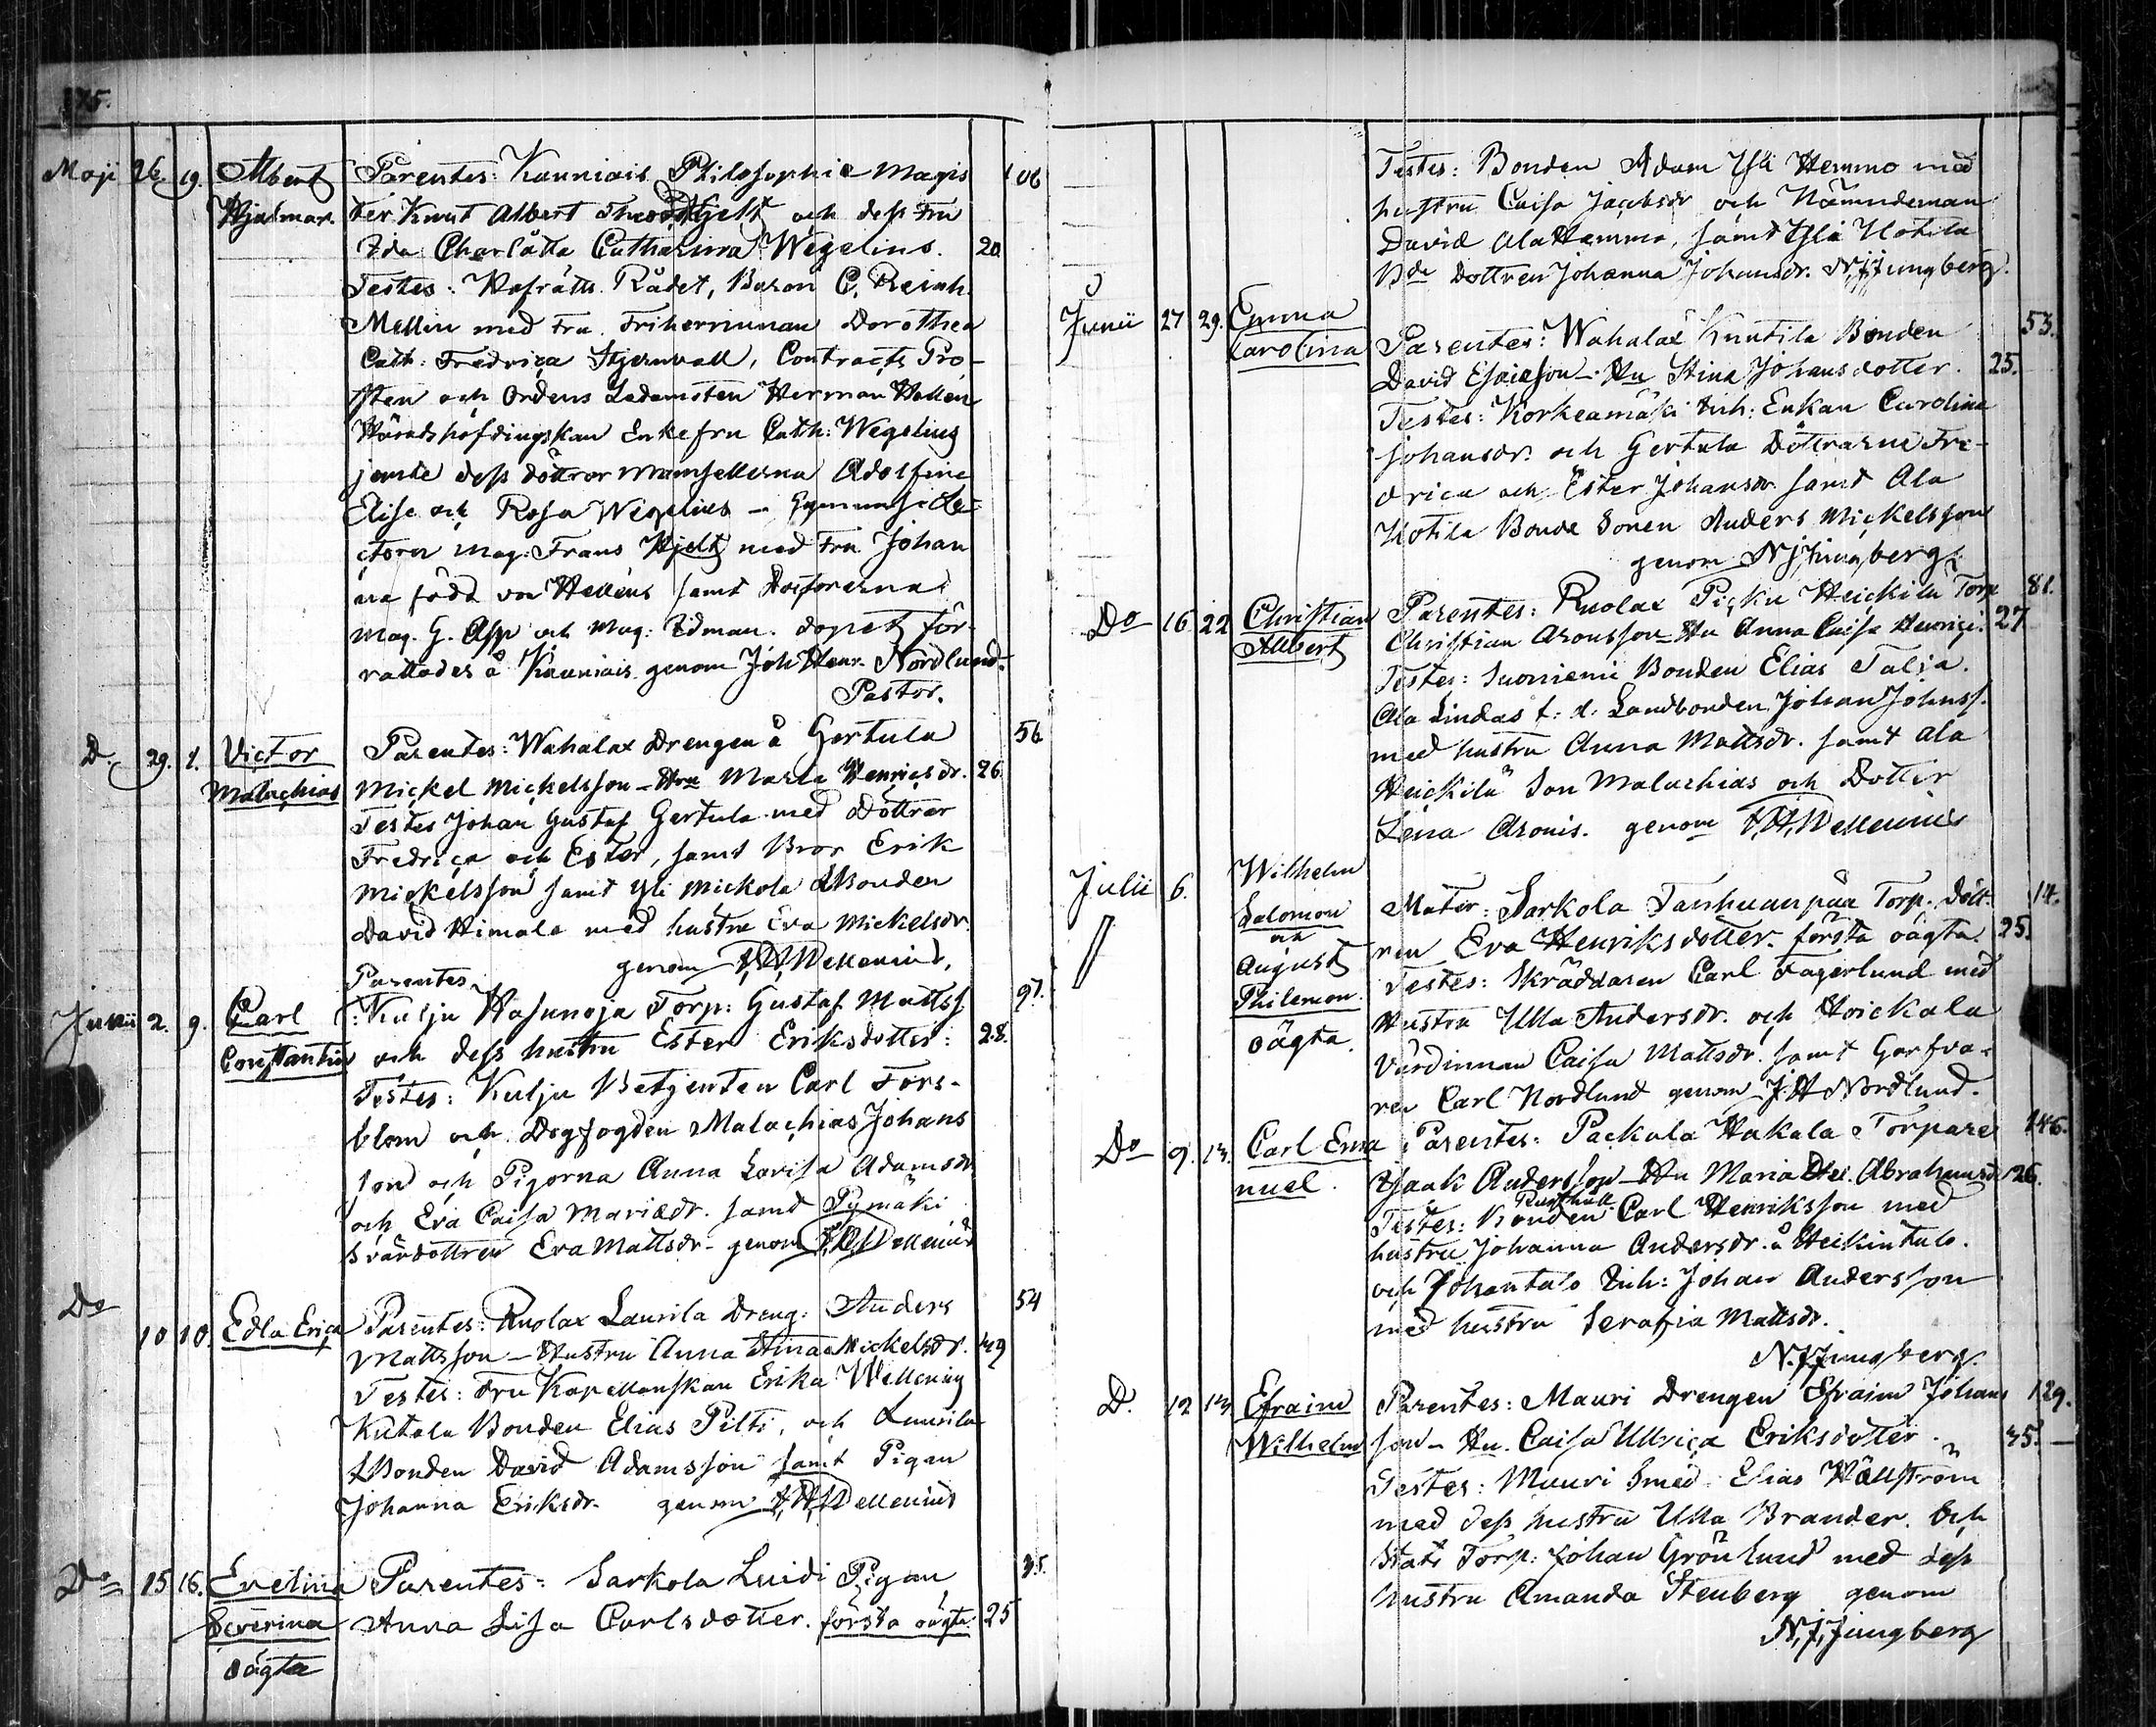 Maji 26. 19. Albert Parentes: Kauniais Philosophie Magis 106
Hjalmar. ter Knut Albert Hjelt och dess Fru
Ida Charlåtta Catharina Wegelius. 20.
Testes: Hofrätts Rådet, Baron C. Reinh.
Mellin med Fru Friherrinnan Dorothea
Cath: Fredrica Stjernvall, Contracts Pro-
sten och Ordens Ledamoten Herman Hellén
Häradshöfdingskan Enkefru Cath: Wegelius
jemte dess döttrar Mamsellerna Adolfine
Elise och Rosa Wegelius - Gymnasie Le-
ctorn Mag: Frans Hjelt med Fru Johan
na född von Hellens samt
Mag. G. Asp och Mag: Edman. dopet för-
rättades å Kauniais genom Joh Henr. Nordlund.
Pastor.
D 29. 1. Victor Parentes: Wahalax Drengen å Gertula 56
Malachias Mickel Mickelsson - Hru Maria Henricsdr. 26
Testes Johan Gustaf Gertula med Döttrar
Fredrica och Ester, samt Bror Erik
Mickelsson samt Yli Mickola Bonden
David Himala med hustru Eva Mickelsdr.
genom Wellenius,
Parentes
Junii 2. 9. Carl : Kulju Hasunoja Torp: Gustaf Mattss 97.
Constantin och dess hustru Ester Eriksdotter: 28.
Testes: Kulju Betjenten Carl Fors-
blom och Dagfogden Malachias Johans
son och Pigorna Anna Lovisa Adamsdr
och Eva Caisa Mariædr. samt Pymäki
Svärdottren Eva Mattsdr - genom Wellenius
Do
10 10. Edla Erica Parentes: Ruolax Laurila Dreng: Anders 54
Mattsson - Hustru Anna Stina Mickelsdr. 49
Testes: Fru Kapellanskan Erika Wellenius
Kutala Bonden Elias Pilti, och Laurila
Bonden David Adamsson samt Pigan
Johanna Eriksdr. genom Wellenius
Do 15 16. Evelina Parentes: Sarkola Luidi Pigan 35.
Severina Anna Lisa Carlsdotter. första oägta. 25
oägta
Testes: Bonden Adam Yli Hemmo med
hustru Caisa Jacobsdr och Nämndeman
David Ala Hemmo, samt Yli Kotila
Bde Dottren Johanna Johansdr. N J Jungberg.
Junii 27 29. Emma
Carolina Parentes: Wahalax Knutila Bonden 53.
David Esaiasson - Hu Stina Johansdotter. 25.
Testes: Korkeamäki Inh: Enkan Carolina
Johansdr. och Gertula Döttrarne Fre-
drica och Ester Johansdr. samt Ala
Kotila Bonde Sonen Anders Mickelsson
genom N J Jungberg
Do 16 22 Christian Parentes: Ruolax Picku Heickilä Torp 81.
Albert Christian Aronsson - Hu Anna Caisa Henrici. 27
Testes: Suoniemi Bonden Elias Talja.
Ala Lindas f: d: Landbonden Johan Johnss.
med hustru Anna Mattsdr. samt Ala
Heickilä Son Malachias och Dotter
Lena Aronis. genom Wellenius
Wilhelm
Julii 6. Salomon Mater: Sarkola Tanhuanpää Torp. Dött- 14.
och ren Eva Henriksdotter. första oägta. 25.
August Testes: Skräddaren Carl Fagerlund med
Philemon. Hustru Ulla Andersdr. och Hoickala
oägta. Värdinnan Caisa Mattsdr. samt Garfva-
ren Carl Nordlund genom J H Nordlund.
Do 9. 13. Carl Ema Parentes: Packala Hakala Torpare 146.
nuel. Isaak Andersson - Hu Maria Abrahamsdr 26.
Rusthåll
Testes: Bonden Carl Henriksson med
hustru Johanna Andersdr. å Heikintalo.
och Johantalo Inh: Johan Andersson
med hustru Serafia Mattsdr.
N. J Jungberg.
D. 12 13 Efraim Parentes: Mauri Drengen Efraim Johans 129.
Wilhelm son - Hu. Caisa Ulrica Eriksdotter. 35.
Testes: Mauri Smed Elias Hällström
med dess hustru Ulla Brander. och
Stats Torp: Johan Grönlund med dess
hustru Amanda Stenberg genom
N. J. Jungberg